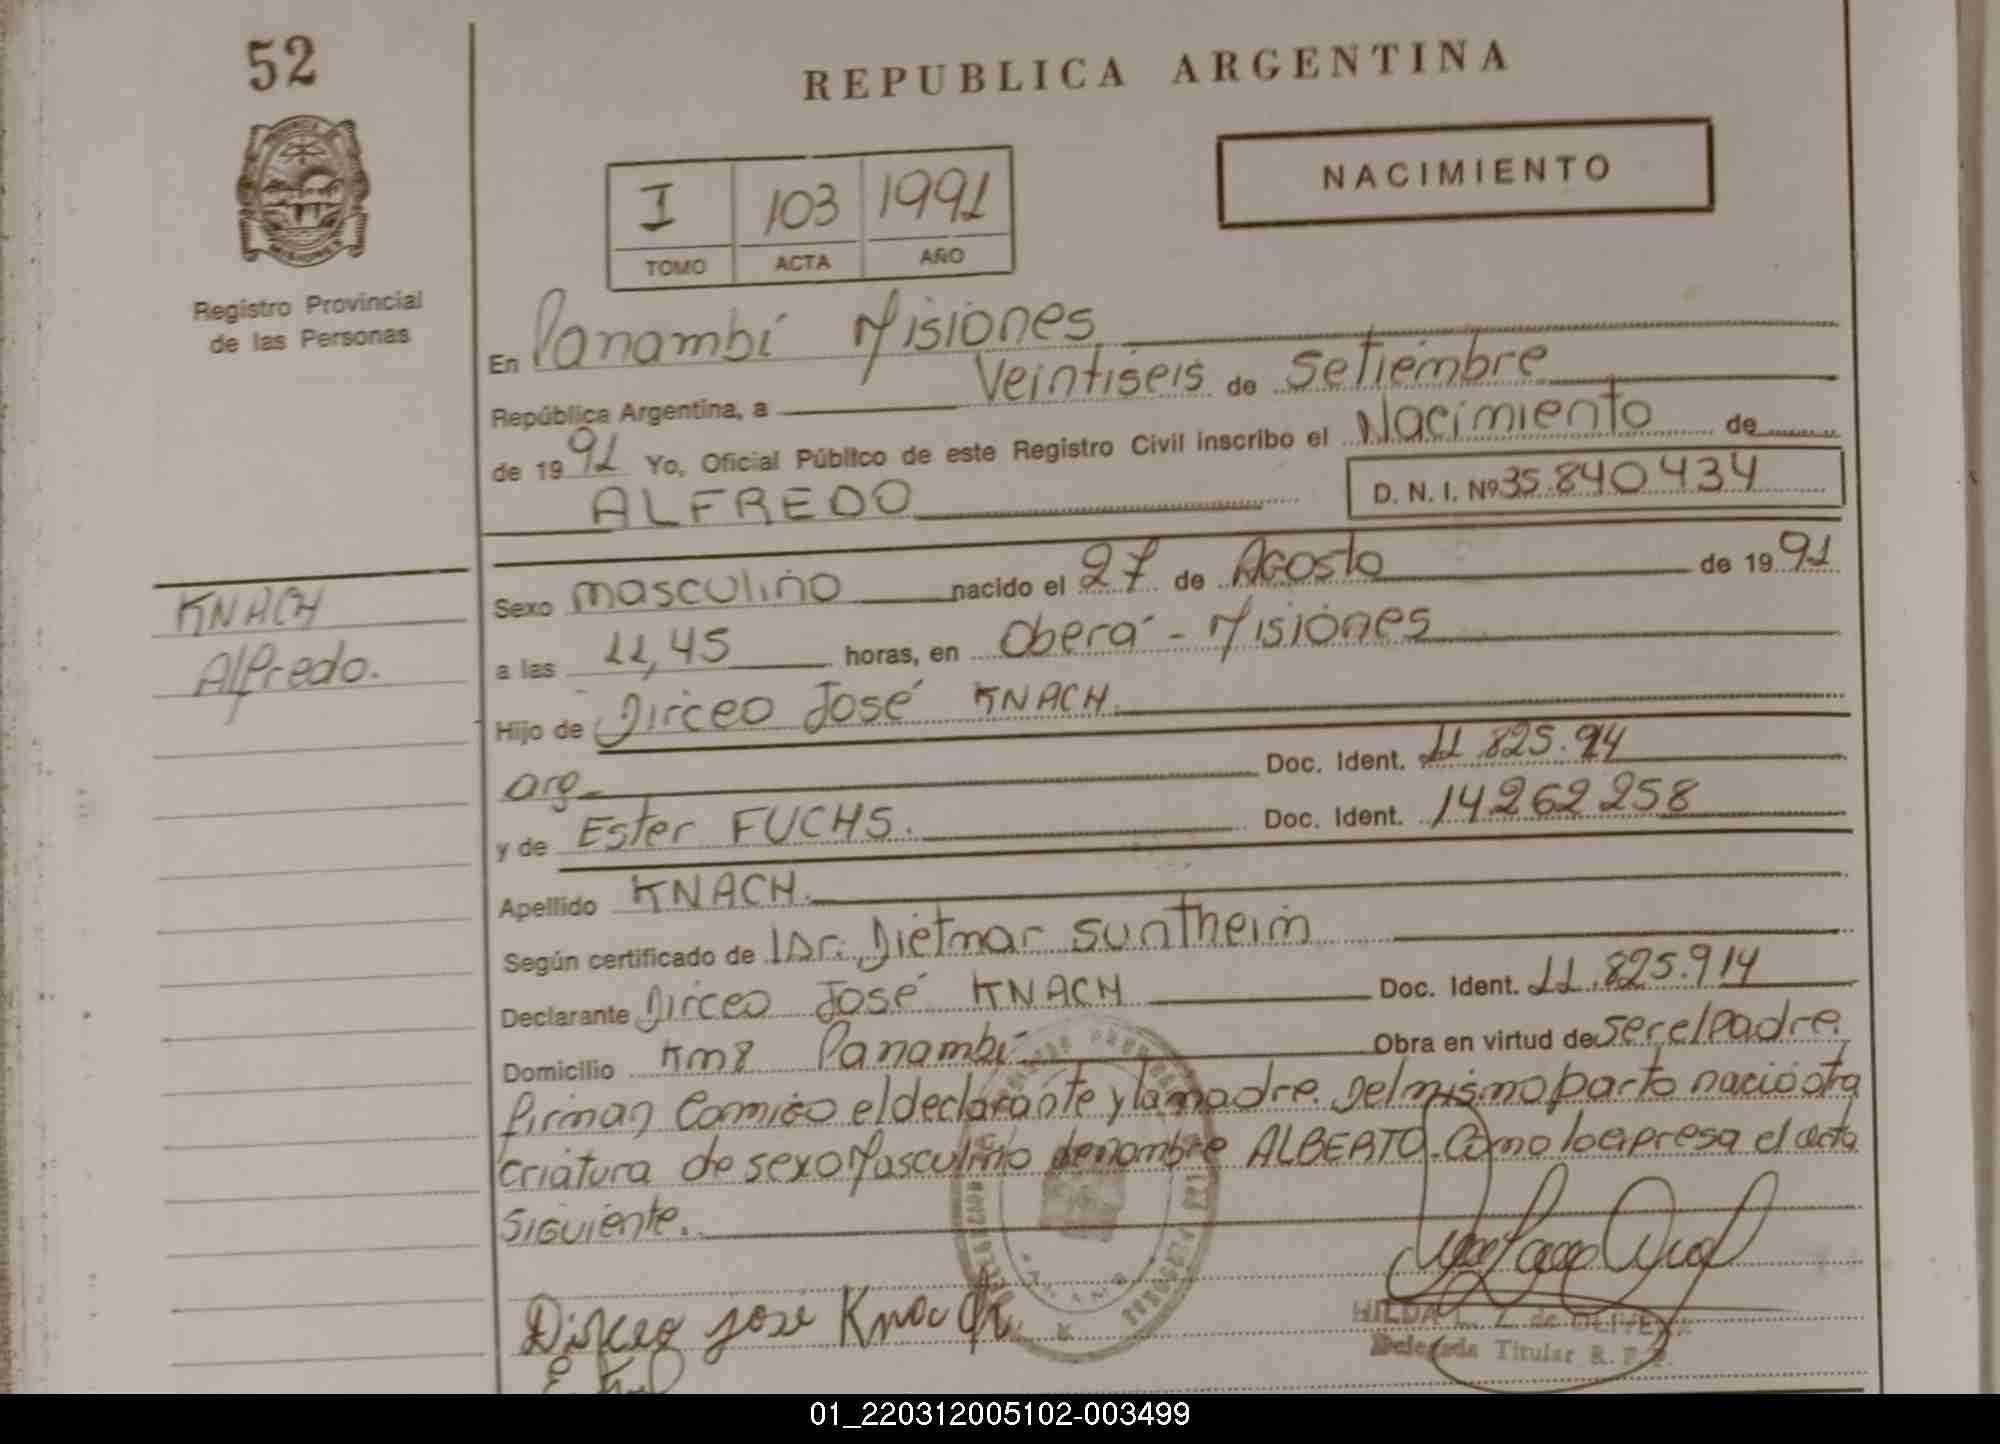 52
REPUBLICA ARGENTINA
NACIMIENTO
I 103 1991
TOMO ACTA AÑO
Registro Provincial
de las Personas
En Panambí Misiones
República Argentina, a Veintiseis de Setiembre
de 1991 Yo, Oficial Público de este Registro Civil inscribo el Nacimiento de
ALFREDO D. N. I. Nº 35.840434
KNACH
Alfredo.
Sexo masculino nacido el 27 de Agosto de 1991
a las 11,45 horas, en Oberá - Misiones
Hijo de Dirceo José KNACH
arg. Doc. Ident. 11.825.914
y de Ester FUCHS. Doc. Ident. 14262258
Apellido KNACH.
Según certificado de Dr. Dietmar Suntheim
Declarante Dirceo José KNACH Doc. Ident. 11.825.914
Domicilio Km8 Panambí Obra en virtud de ser el Padre.
firman Comigo el declarante y la madre. Del mismo parto nació otra
criatura de sexo Masculino de nombre ALBERTO. Como lo expresa el acta
siguiente.
Dirceo José Knach
HILDA de OLIVERA
Delegada Titular R. P. P.
01_220312005102-003499